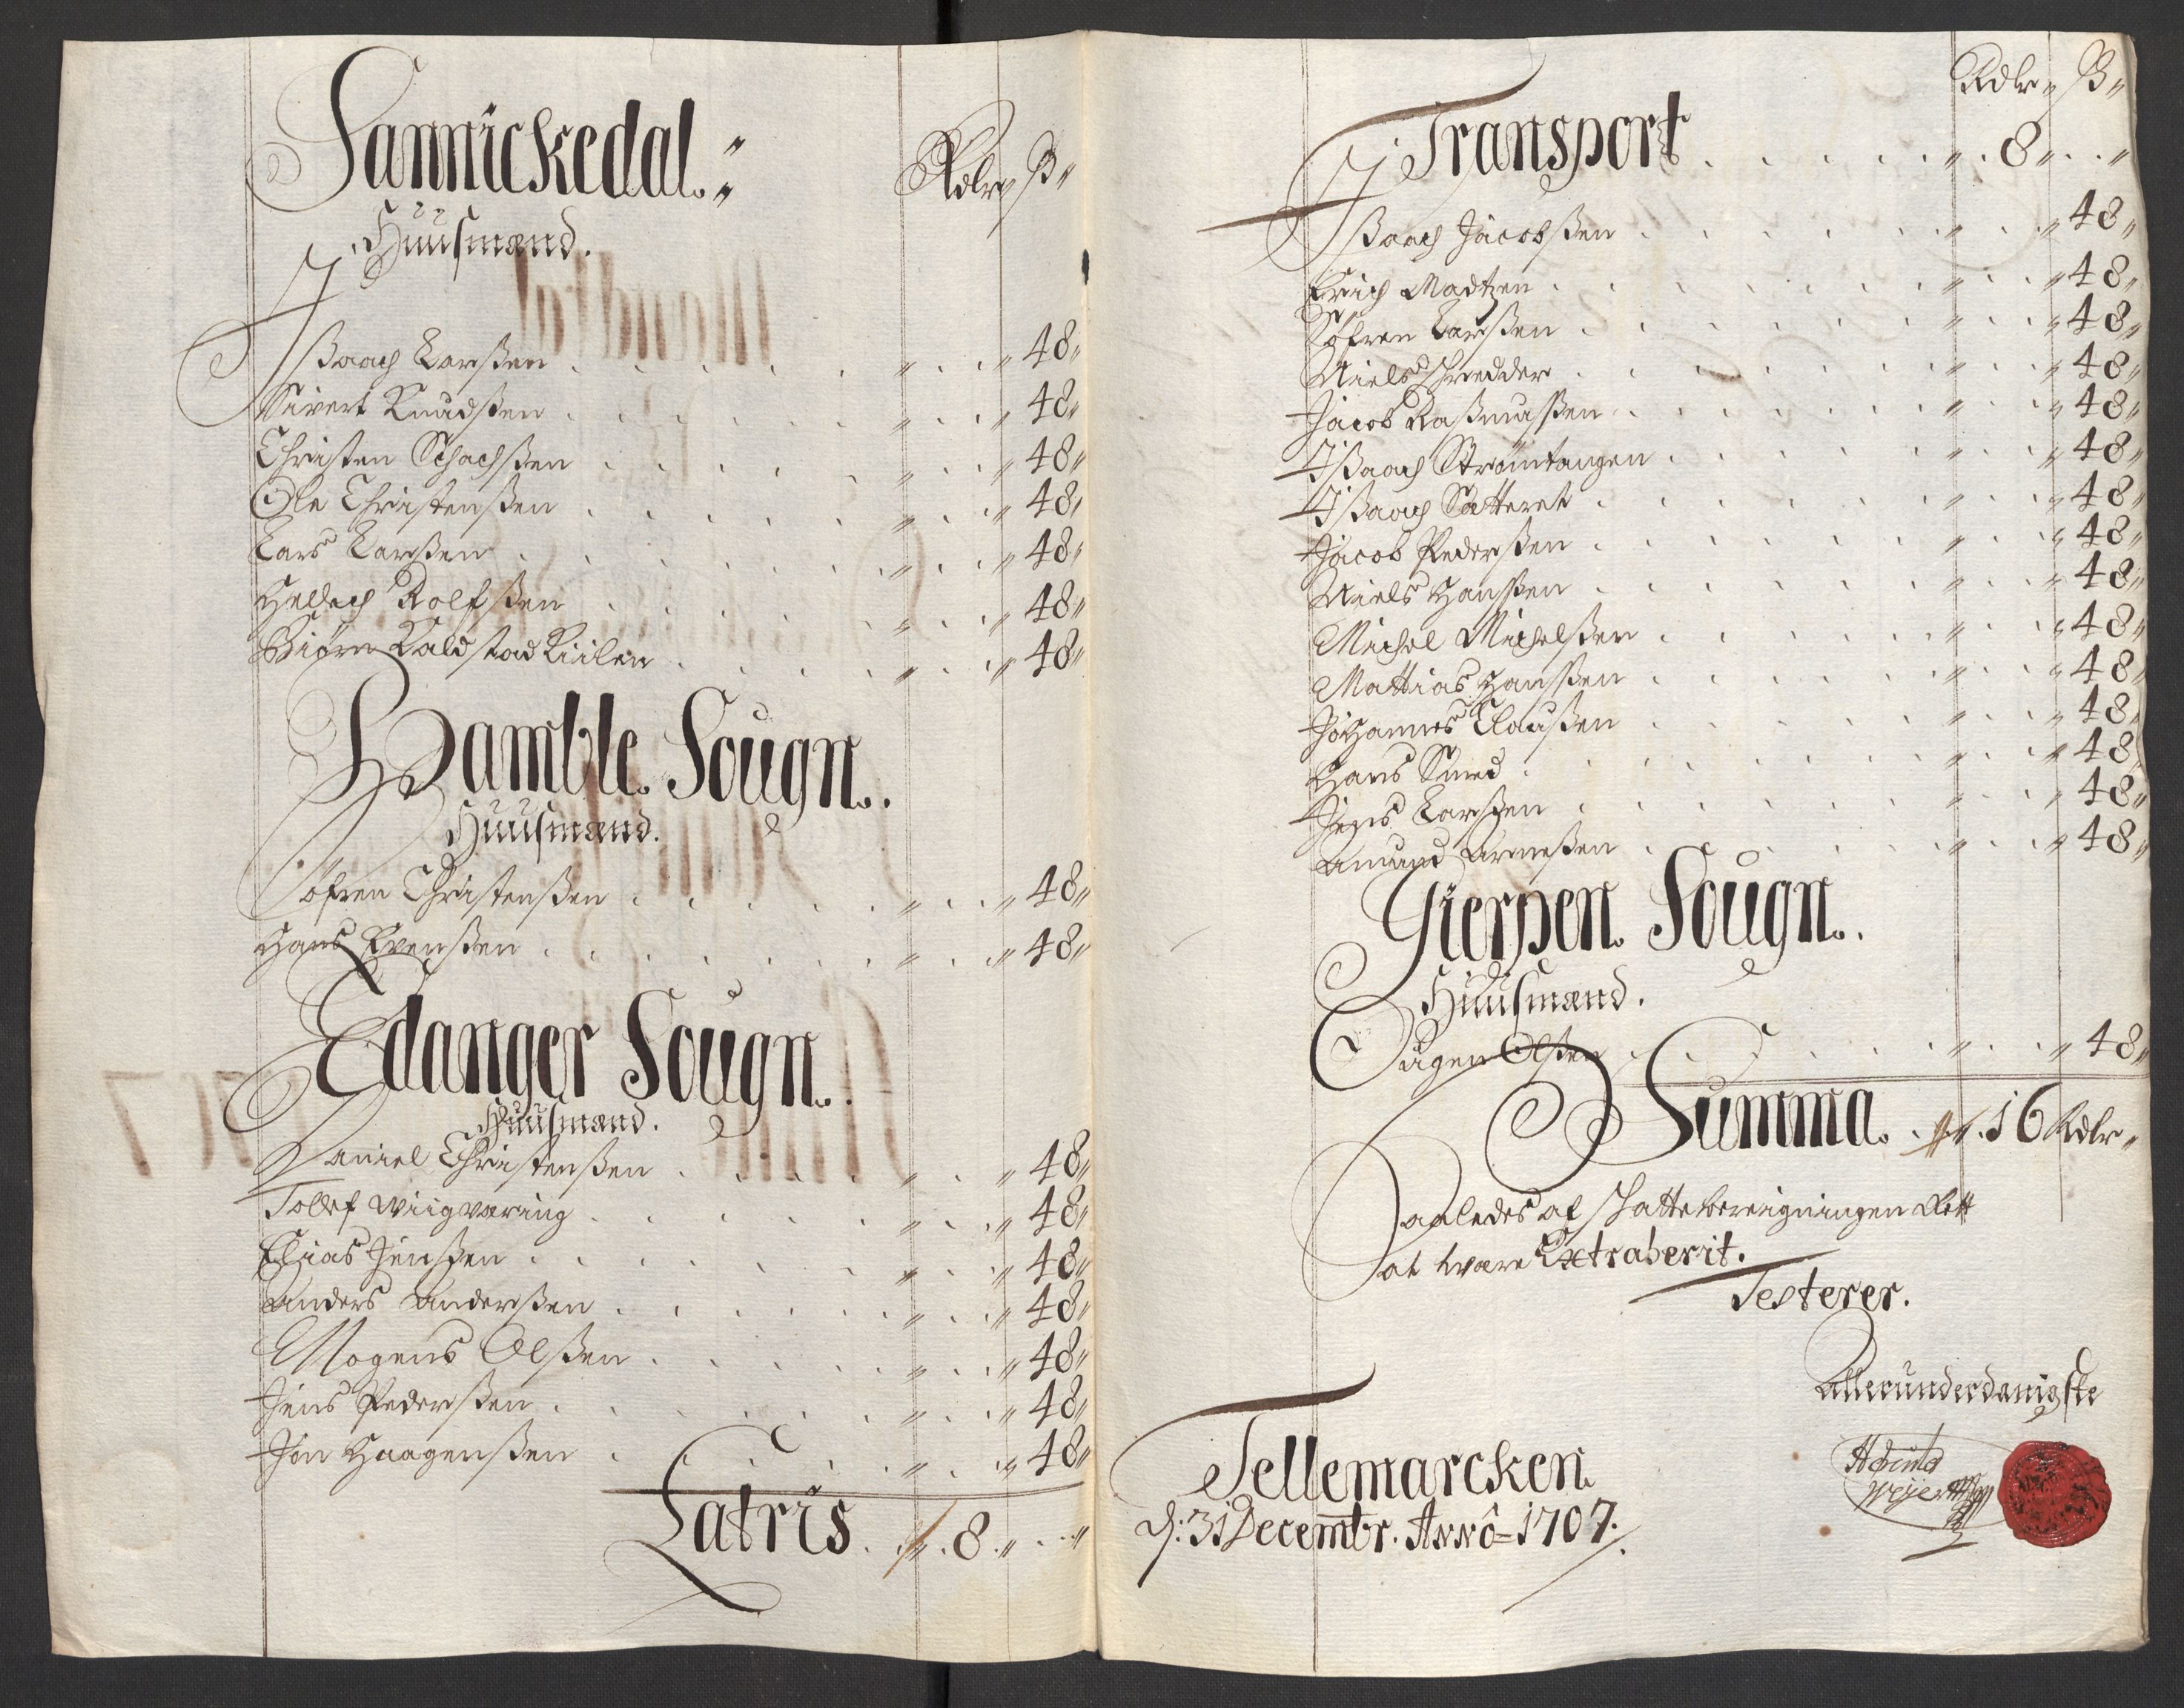 Sannickedal.
Rdlr ß
Huusmænd.
Ißaach Larßen 48
Sivert Knudßen 48
Christen Schachßen 48
Ole Christenßen 48
Lars Larßen 48
Hellech Rolfßen 48
Biørn Kaldstad Kiilen 48
Bamble Sougn.
Huusmænd.
Søfren Christenßen 48
Hans Evenßen 48
Edanger Sougn.
Huusmænd.
Daniel Christenßen 48
Tollef wiigværing 48
Elias Jenßen 48
Anders Anderßen 48
Mogens Olßen 48
Jens Pederßen 48
Jon Haagenßen 48
Latris 8
Rdlr ß
Transport 8
Ißaach Jacobßen 48
Erich Madtzen 48
Søfren Larßen 48
Niels Schrædder 48
Jacob Raßmußen 48
Ißaach Strømtangen 48
Ißaach Sætteret 48
Jacob Pederßen 48
Niels Hanßen 48
Michel Michelßen 48
Mattias Hanßen 48
Johannes Claußen 48
Hans Smed 48
Jens Larßen 48
Amund Arneßen 48
Gierpen Sougn.
Huusmænd.
Ougen Olßen 48
Summa. 16 Rdlr
Saaledes af Schattebereigningen Rett
at were Extraherit.
Testerer.
Allerunderdanigste
Tellemarcken
d: 31 Decembr. Anno 1707.